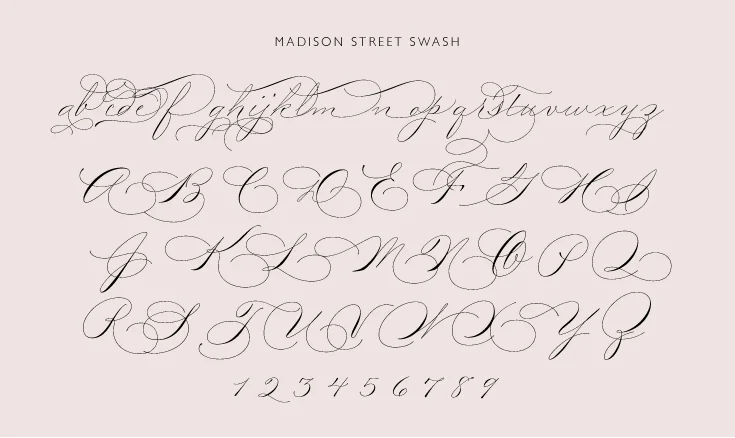 MADISON STREET SWASH
abcdef ghijklm n opqrstuvwxyz
A B C D E F G H I
J K L M N O P Q
R S T U V W X Y Z
1 2 3 4 5 6 7 8 9